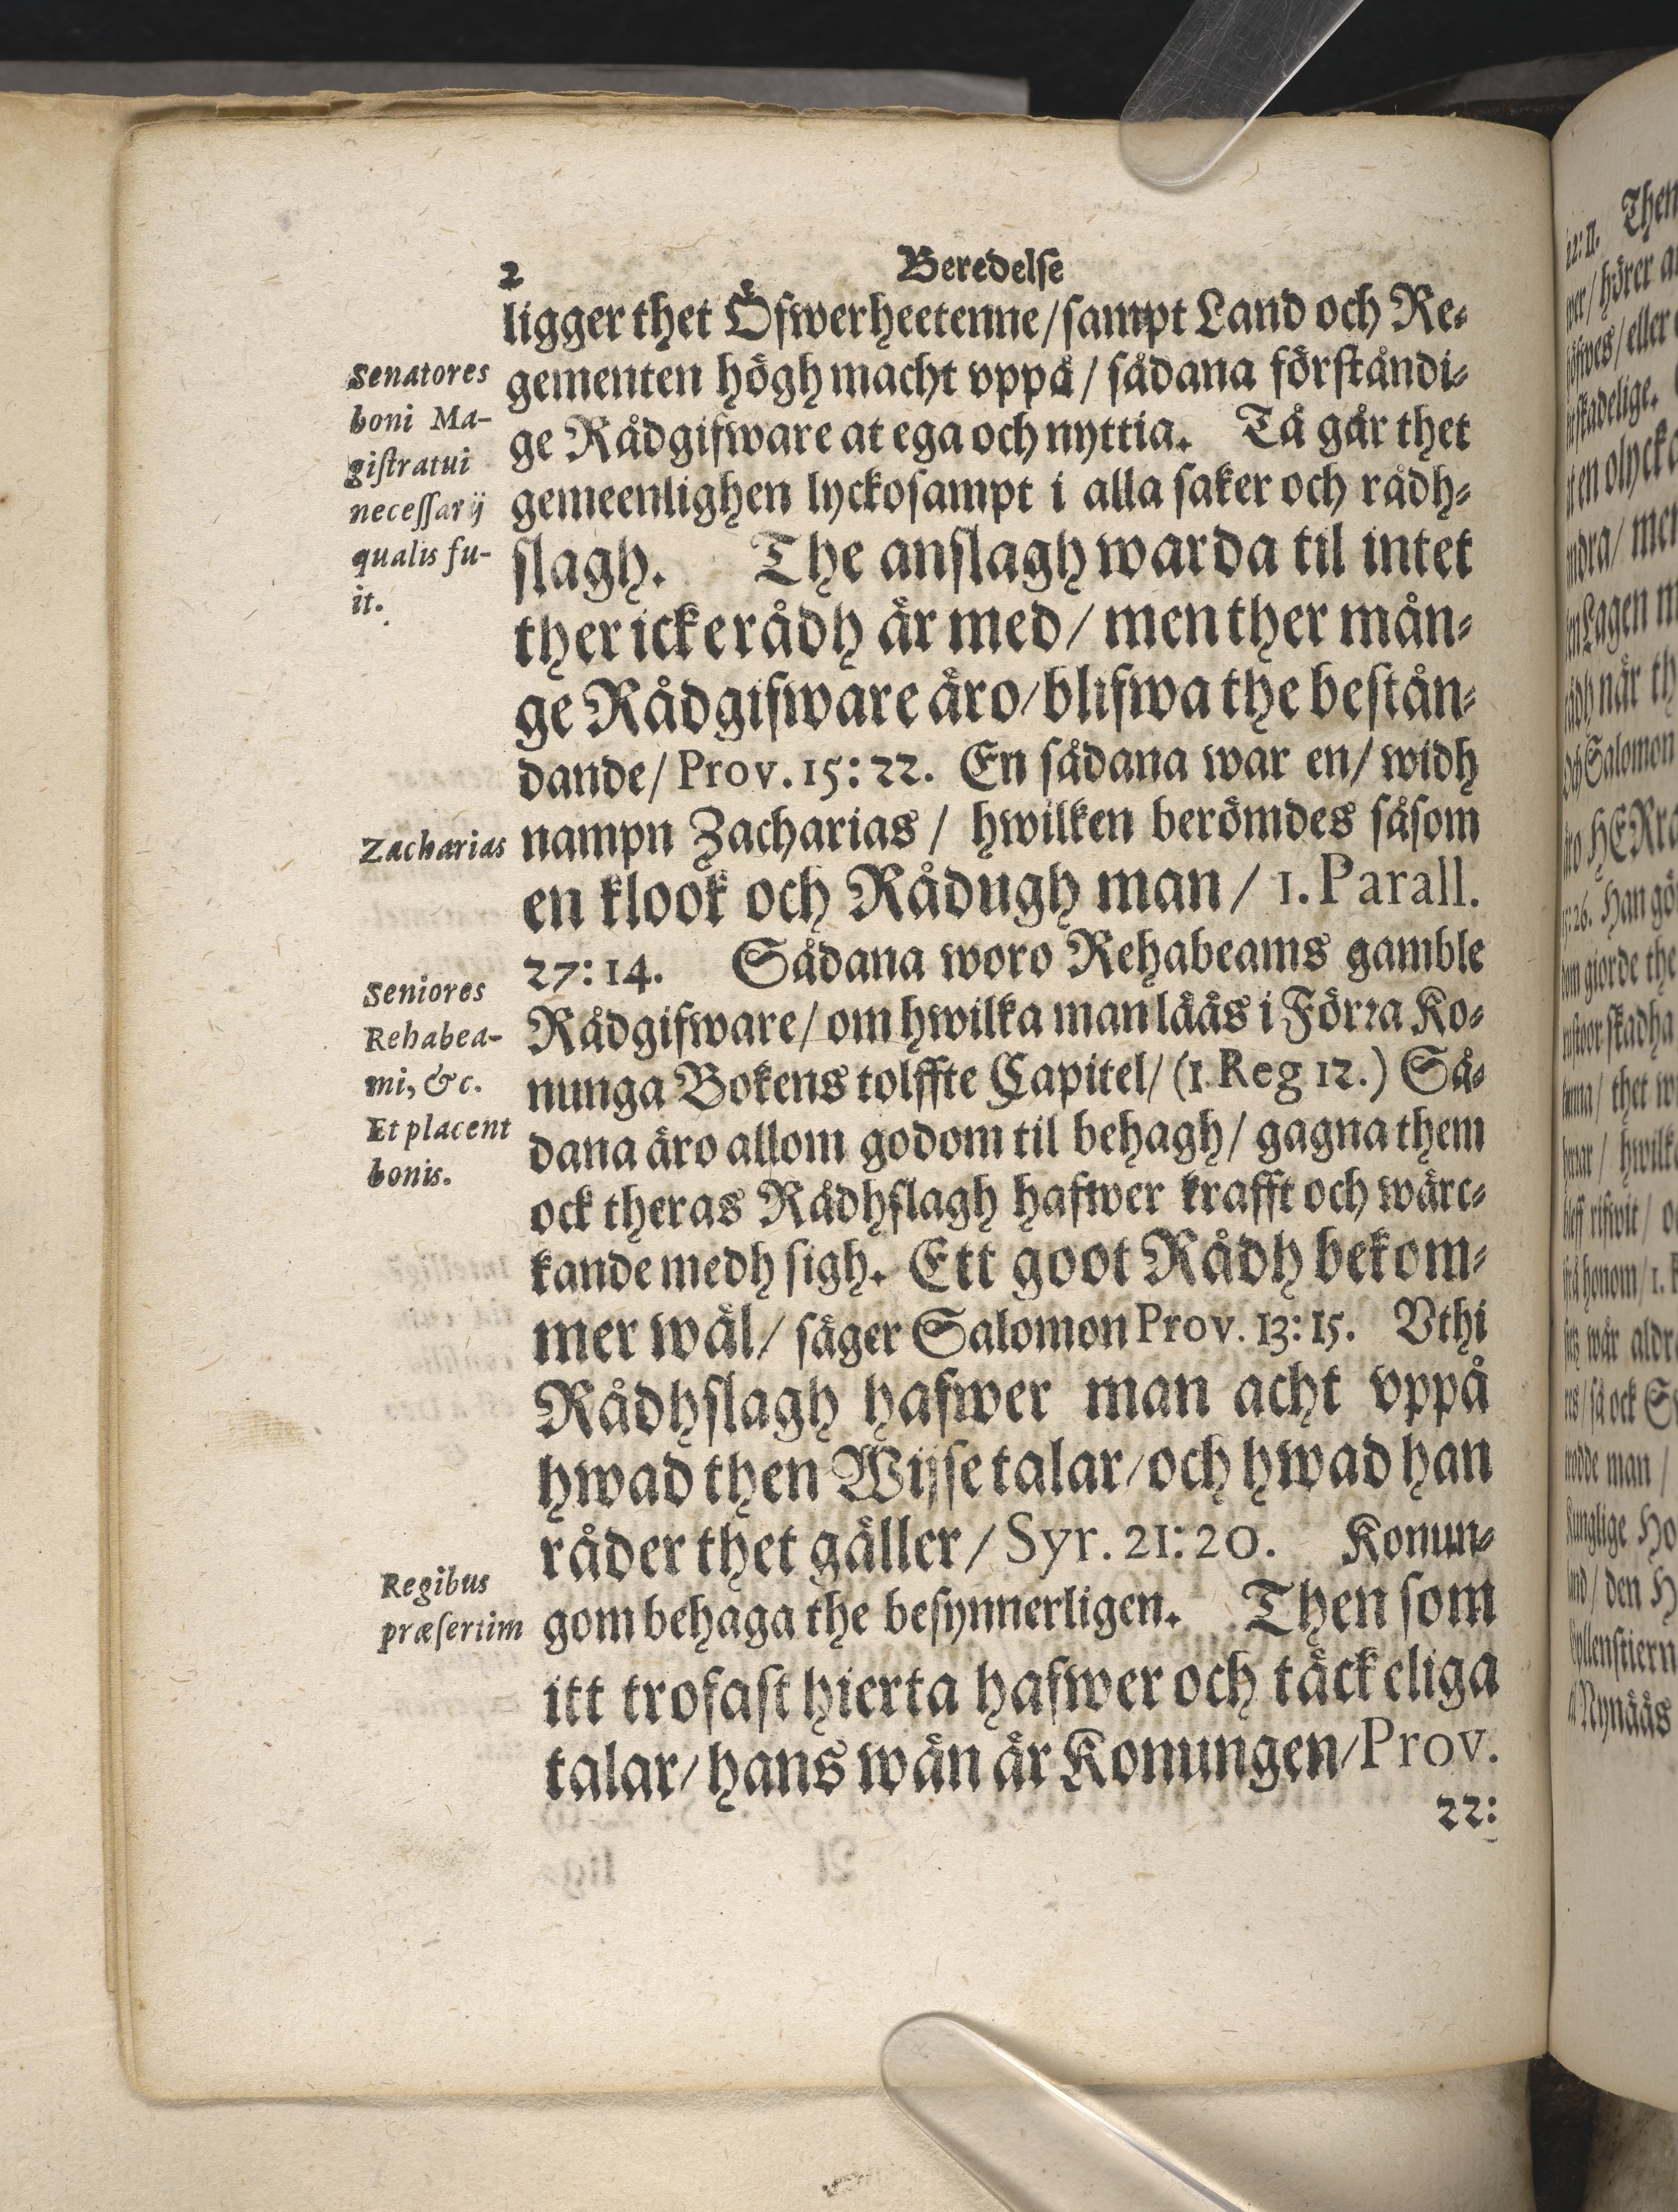 2
Beredelse
ligger thet Öfwerheetenne/sampt Land och Re-
gementen högh macht vppå/ sådana förståndi-
ge Rådgifware at ega och nyttia. Tå går thet
gemeenlighen lyckosampt i alla saker och rådh-
slagh. The anslagh warda til intet
ther icke rådh är med/ men ther mån-
ge Rådgifware äro/blifwa the bestån-
dande/ Prov. 15:22. En sådana war en/ widh
nampn Zacharias/ hwilken berömdes såsom
en klook och Rådugh man/ 1. Parall.
27:14. Sådana woro Rehabeams gamble
Rådgifware/ om hwilka man lääs i Förra Ko-
nunga Bokens tolffte Capitel/ (1. Reg 12.) Så-
dana äro allom godom til behagh/ gagna them
ock theras Rådhslagh hafwer krafft och wärc-
kande medh sigh. Ett goot Rådh bekom-
mer wäl/ säger Salomon Prov. 13:15. Vthi
Rådhslagh hafwer man acht vppå
hwad then Wijse talar/och hwad han
råder thet gäller/ Syr. 21:20. Konun-
gom behaga the besynnerligen. Then som
itt trofast hierta hafwer och täckeliga
talar/ hans wän är Konungen/Prov.
22:
Senatores
boni Ma-
giſtratui
neceſſarij
qualis fu-
it.
Zacharias
Seniores
Rehabea-
mi, &c.
Et placent
bonis.
Regibus
præſertim
22: 11. Then
skadelige.
ndra/ men
Och Salomon
Han gö
giorde the
skadha
thet
honom/ 1.
wår aldr
så ock
man/
Ho
den H
Nynääs